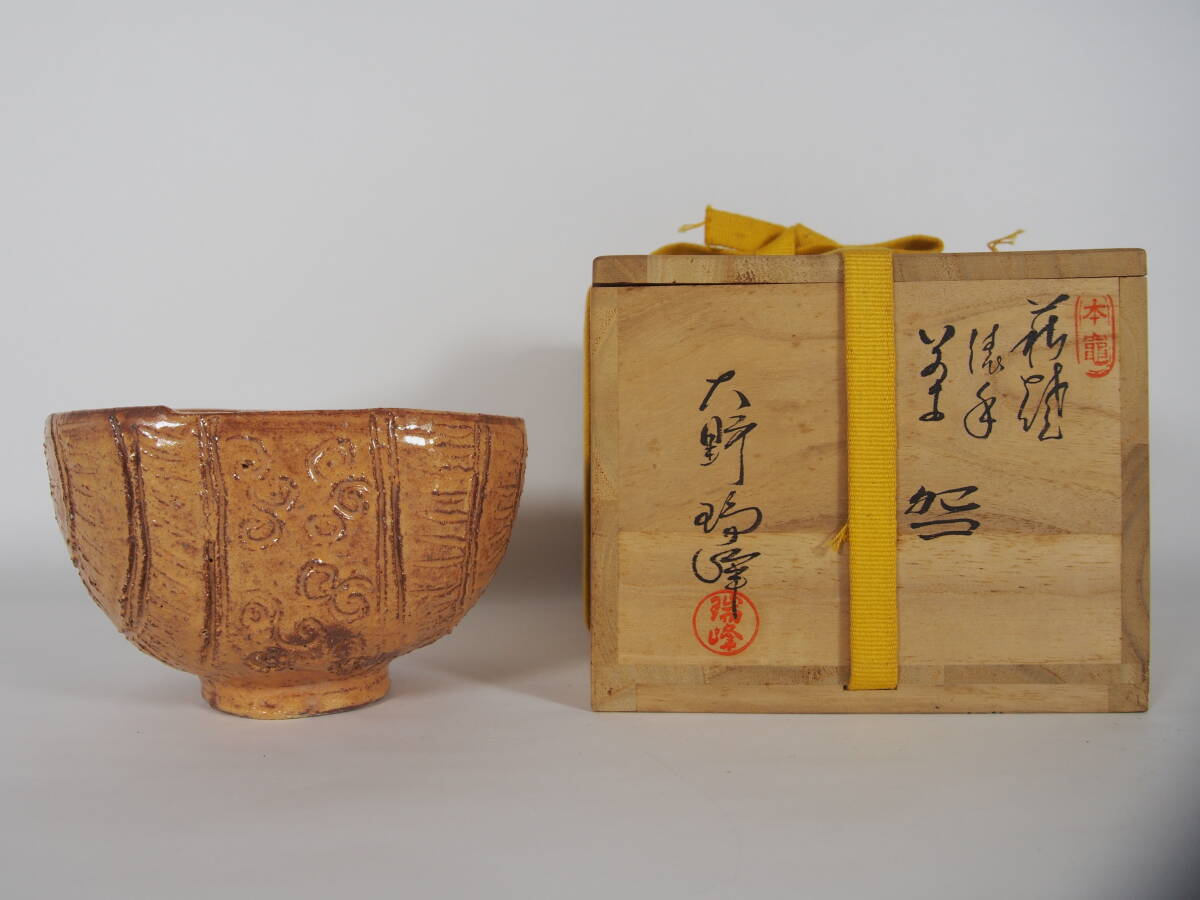 本窯
萩焼
俵手
茶
盌
大野瑞峰
瑞峰